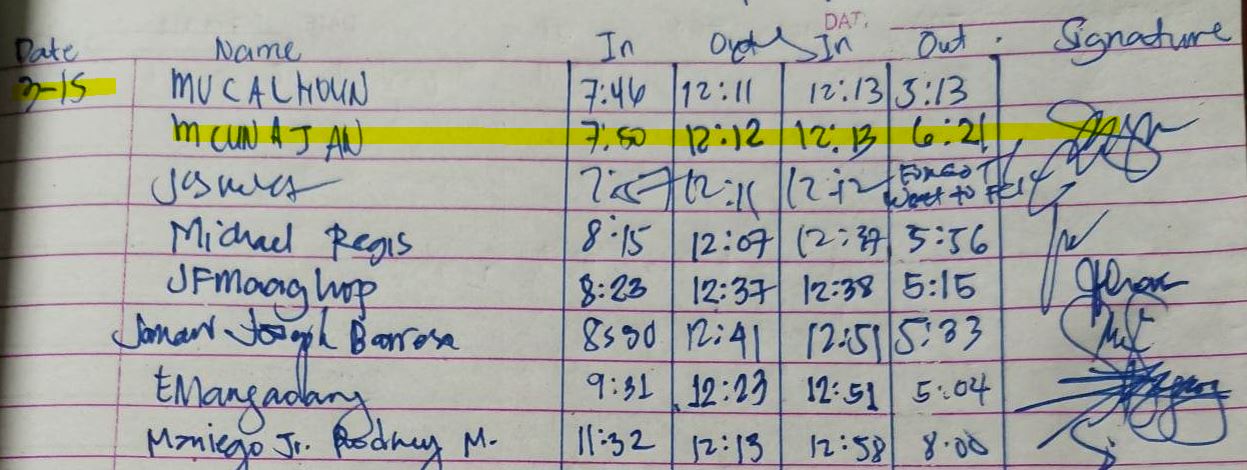 DAT.
Date Name In Out In Out. Signature
3-15 MUCALHOUN 7:46 12:11 12:13 5:13
MCUNAJAN 7:50 12:12 12:13 6:21
12:11 12:12 FORGOT
Went to
Michael Regis 8:15 12:07 12:37 5:56
JFMaaghop 8:23 12:37 12:38 5:15
Joseph Barrosa 8:30 12:41 12:51 5:33
EMangadang 9:31 12:23 12:51 5:04
Maniego Jr. Rodney M. 11:32 12:13 12:58 8:00